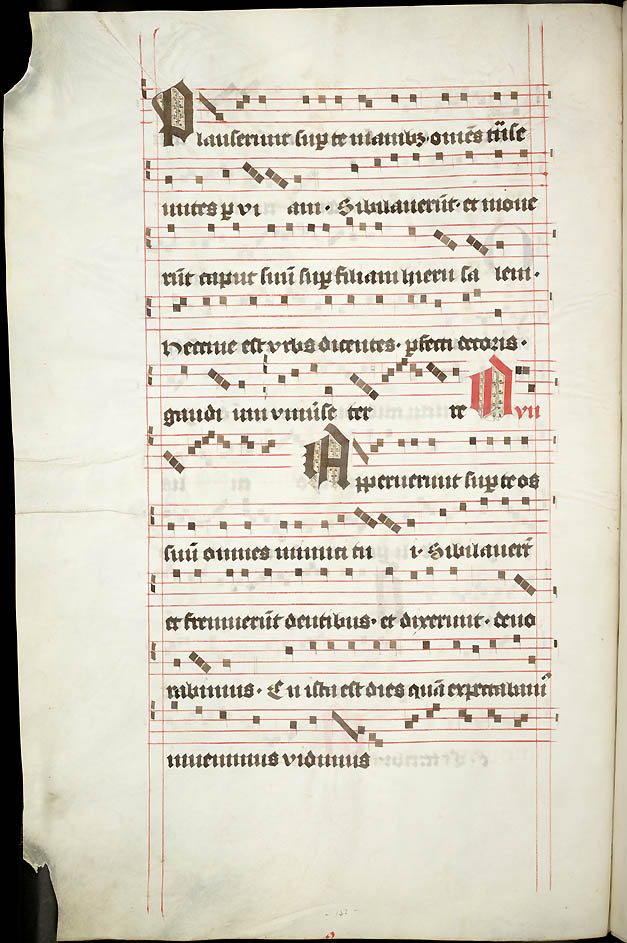 Plauserunt sup te manibz · oms tūse
untes p vi am · Sibilauerūt · et moue
rūt caput suū sup filiam hieru sa lem ·
Heccine est vrbs dicentes · pfecti decoris ·
gaudi um vniuse ter re Nvn
Apperuerunt sup te os
suū omnes inimici tu i · Sibilauerūt
et fremuerūt dentibus · et dixerunt · deuo
rabimus · En ista est dies quā expectabam
inuenimus vidimus